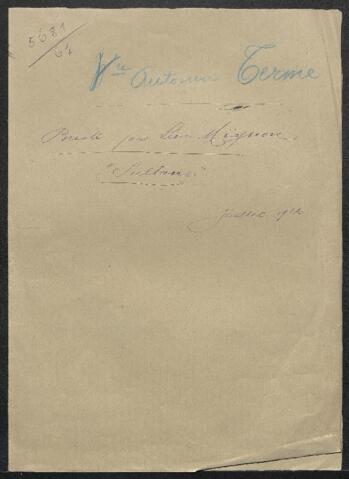 5681
/64
Vte Antonin Terme
Buste par Léon Mignon.
"Sultane"
Juillet 1912